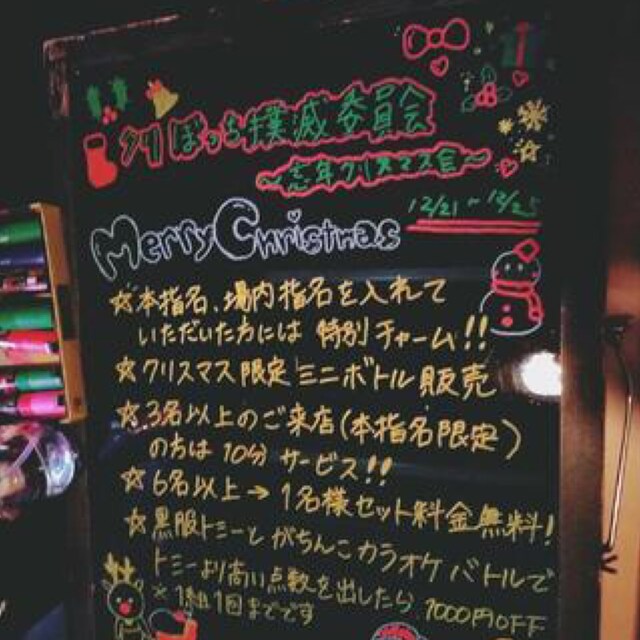 クリぼっち撲滅委員会
～忘年クリスマス会～
12/21～12/25
Merry Christmas
☆本指名、場内指名を入れて
いただいた方には 特別チャーム!!
☆クリスマス限定ミニボトル販売
☆3名以上のご来店(本指名限定)
の方は 10分 サービス!!
☆6名以上→1名様セット料金無料!
☆黒服トミーとがちんこカラオケバトルで
トミーより高い点数を出したら 1000円OFF
×1組1回までです